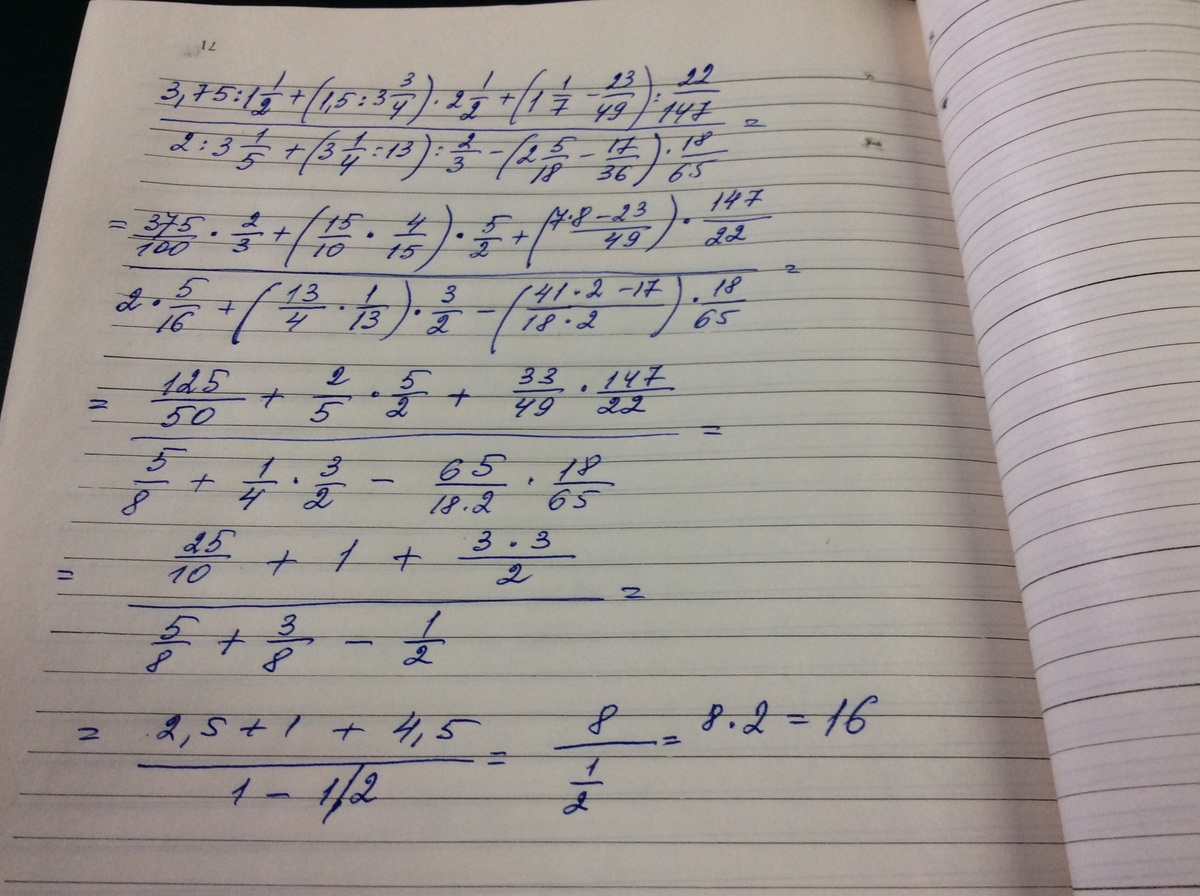 71
3,75 : 1 1/2 + (1,5 : 3 3/4) · 2 1/2 + (1 1/7 - 23/49) : 22/147
2 : 3 1/5 + (3 1/4 : 13) : 2/3 - (2 5/18 - 17/36) · 18/65 =
= 375/100 · 2/3 + (15/10 · 4/15) · 5/2 + (7·8-23/49) · 147/22
2 · 5/16 + (13/4 · 1/13) · 3/2 - (41·2-17/18·2) · 18/65 =
= 125/50 + 2/5 · 5/2 + 33/49 · 147/22
5/8 + 1/4 · 3/2 - 65/18.2 · 18/65 =
= 25/10 + 1 + 3·3/2
5/8 + 3/8 - 1/2 =
= 2,5 + 1 + 4,5 / 1 - 1/2 = 8 / 1/2 = 8·2 = 16